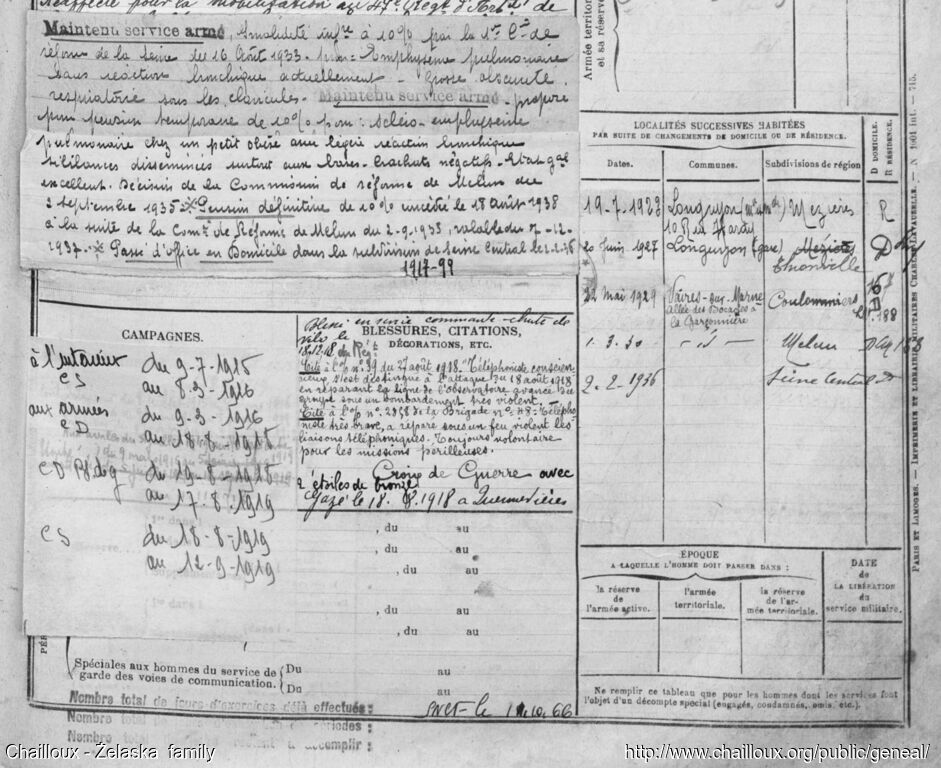 Réaffecté pour la mobilisation au 47e Régt d'
Maintenu service armé, Invalidité infre à 10% par la 1re Con de
réforme de la Seine du 16 Août 1933 pour: Emphysème pulmonaire
sans réaction bronchique actuellement - Grosse obscurité
respiratoire sous les clavicules. Maintenu service armé - propose
pour pension temporaire de 10% pour: scléro-emphysème
pulmonaire chez un petit obèse avec légère réaction bronchique
sibilances disséminées surtout aux bases. Crachats négatifs. Etat gal
excellent. Décision de la Commission de réforme de Melun du
2 septembre 1935 Pension définitive de 10% concédée le 18 août 1938
à la suite de la Com. de Réforme de Melun du 2-9-1935, valable du 7-12-
1937. Passé d'office en Domicile dans la subdivision de Seine Central le
1917-99
CAMPAGNES.
à l'intérieur du 9-7-1915
CS au 8-3-1916
aux armées du 9-3-1916
CD au 18-8-1918
CD du 19-8-1918
au 17-8-1919
CS du 18-8-1919
au 12-9-1919
Blessé en service commandé chute de
vélo le
18.12.18
BLESSURES, CITATIONS,
DÉCORATIONS, ETC.
Cité à l'o/ n° 39 du 27 août 1918. "Téléphoniste conscien
cieux, s'est distingué à l'attaque du 18 août 1918
en réparant la ligne de l'observatoire avancé du
groupe sous un bombardement très violent.
Cité à l'o/ n° de la Brigade n° 48: Télépho
niste très brave, a réparé sous un feu violent les
liaisons téléphoniques. Toujours volontaire
pour les missions périlleuses.
Croix de Guerre avec
2 étoiles de bronze
Gazé le 18. 8.1918 à
, du au
, du au
, du au
, du au
, du au
Spéciales aux hommes du service de
garde des voies de communication.
Du au
Du au
Nombre total de jours d'exercices déjà effectués:
Nombre total de périodes:
Nombre total à accomplir:
le 1.10.66
Armée territor
et sa réserve
LOCALITÉS SUCCESSIVES HABITÉES
PAR SUITE DE CHANGEMENTS DE DOMICILE OU DE RÉSIDENCE.
Dates. Communes. Subdivisions de région
D DOMICILE.
R RÉSIDENCE.
19-7-1923 Longuyon Mézières R
20 Juin 1927 Longuyon (gare) Mézières D
Thionville
22 mai 1929 Vaires-sur-Marne Coulommiers D
allée des Bocages à
la Garçonnière
1.3.30 - id - Melun D
9.2.1936 Seine Central D
ÉPOQUE
A LAQUELLE L'HOMME DOIT PASSER DANS :
la réserve
de
l'armée active.
l'armée
territoriale.
la réserve
de l'ar-
mée territoriale.
DATE
de
LA LIBÉRATION
du
service militaire.
Ne remplir ce tableau que pour les hommes dont les services font
l'objet d'un décompte special (engagés, condamnés, omis, etc.)
PARIS ET LIMOGES. — IMPRIMERIE ET LIBRAIRIE MILITAIRES CHARLES-LAVAUZELLE. — N° 1001 int. — 715.
Chailloux - Żelaska family
http://www.chailloux.org/public/geneal/